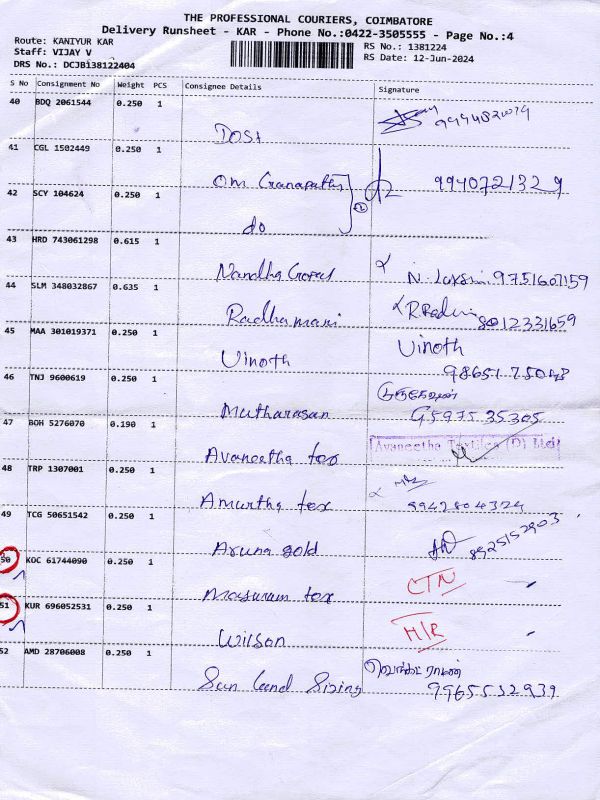 THE PROFESSIONAL COURIERS, COIMBATORE
Delivery Runsheet - KAR - Phone No.:0422-3505555 - Page No.:4
Route: KANIYUR KAR
Staff: VIJAY V
DRS No.: DCJB138122404
RS No.: 1381224
RS Date: 12-Jun-2024
S No Consignment No Weight PCS Consignee Details Signature
40 BDQ 2061544 0.250 1
Dosi
41 CGL 1502449 0.250 1
Om Ganapathy 9940721329
42 SCY 104624 0.250 1
do
43 HRD 743061298 0.615 1
Nandha Gopal N. Laxmi 9751607159
44 SLM 348032867 0.635 1
Radhamani 8012331659
45 MAA 301019371 0.250 1
Vinoth Vinoth
46 TNJ 9600619 0.250 1
Mutharasan
47 BOH 5276070 0.190 1
Avaneetha tex Avaneetha Textiles (P) Ltd
48 TRP 1307001 0.250 1
Amurtha tex 9942804324
49 TCG 50651542 0.250 1
Aruna gold 8925152903
50 KOC 61744090 0.250 1
CTN
51 KUR 696052531 0.250 1
Wilson
52 AMD 28706008 0.250 1
San Land Sizing 9965532939